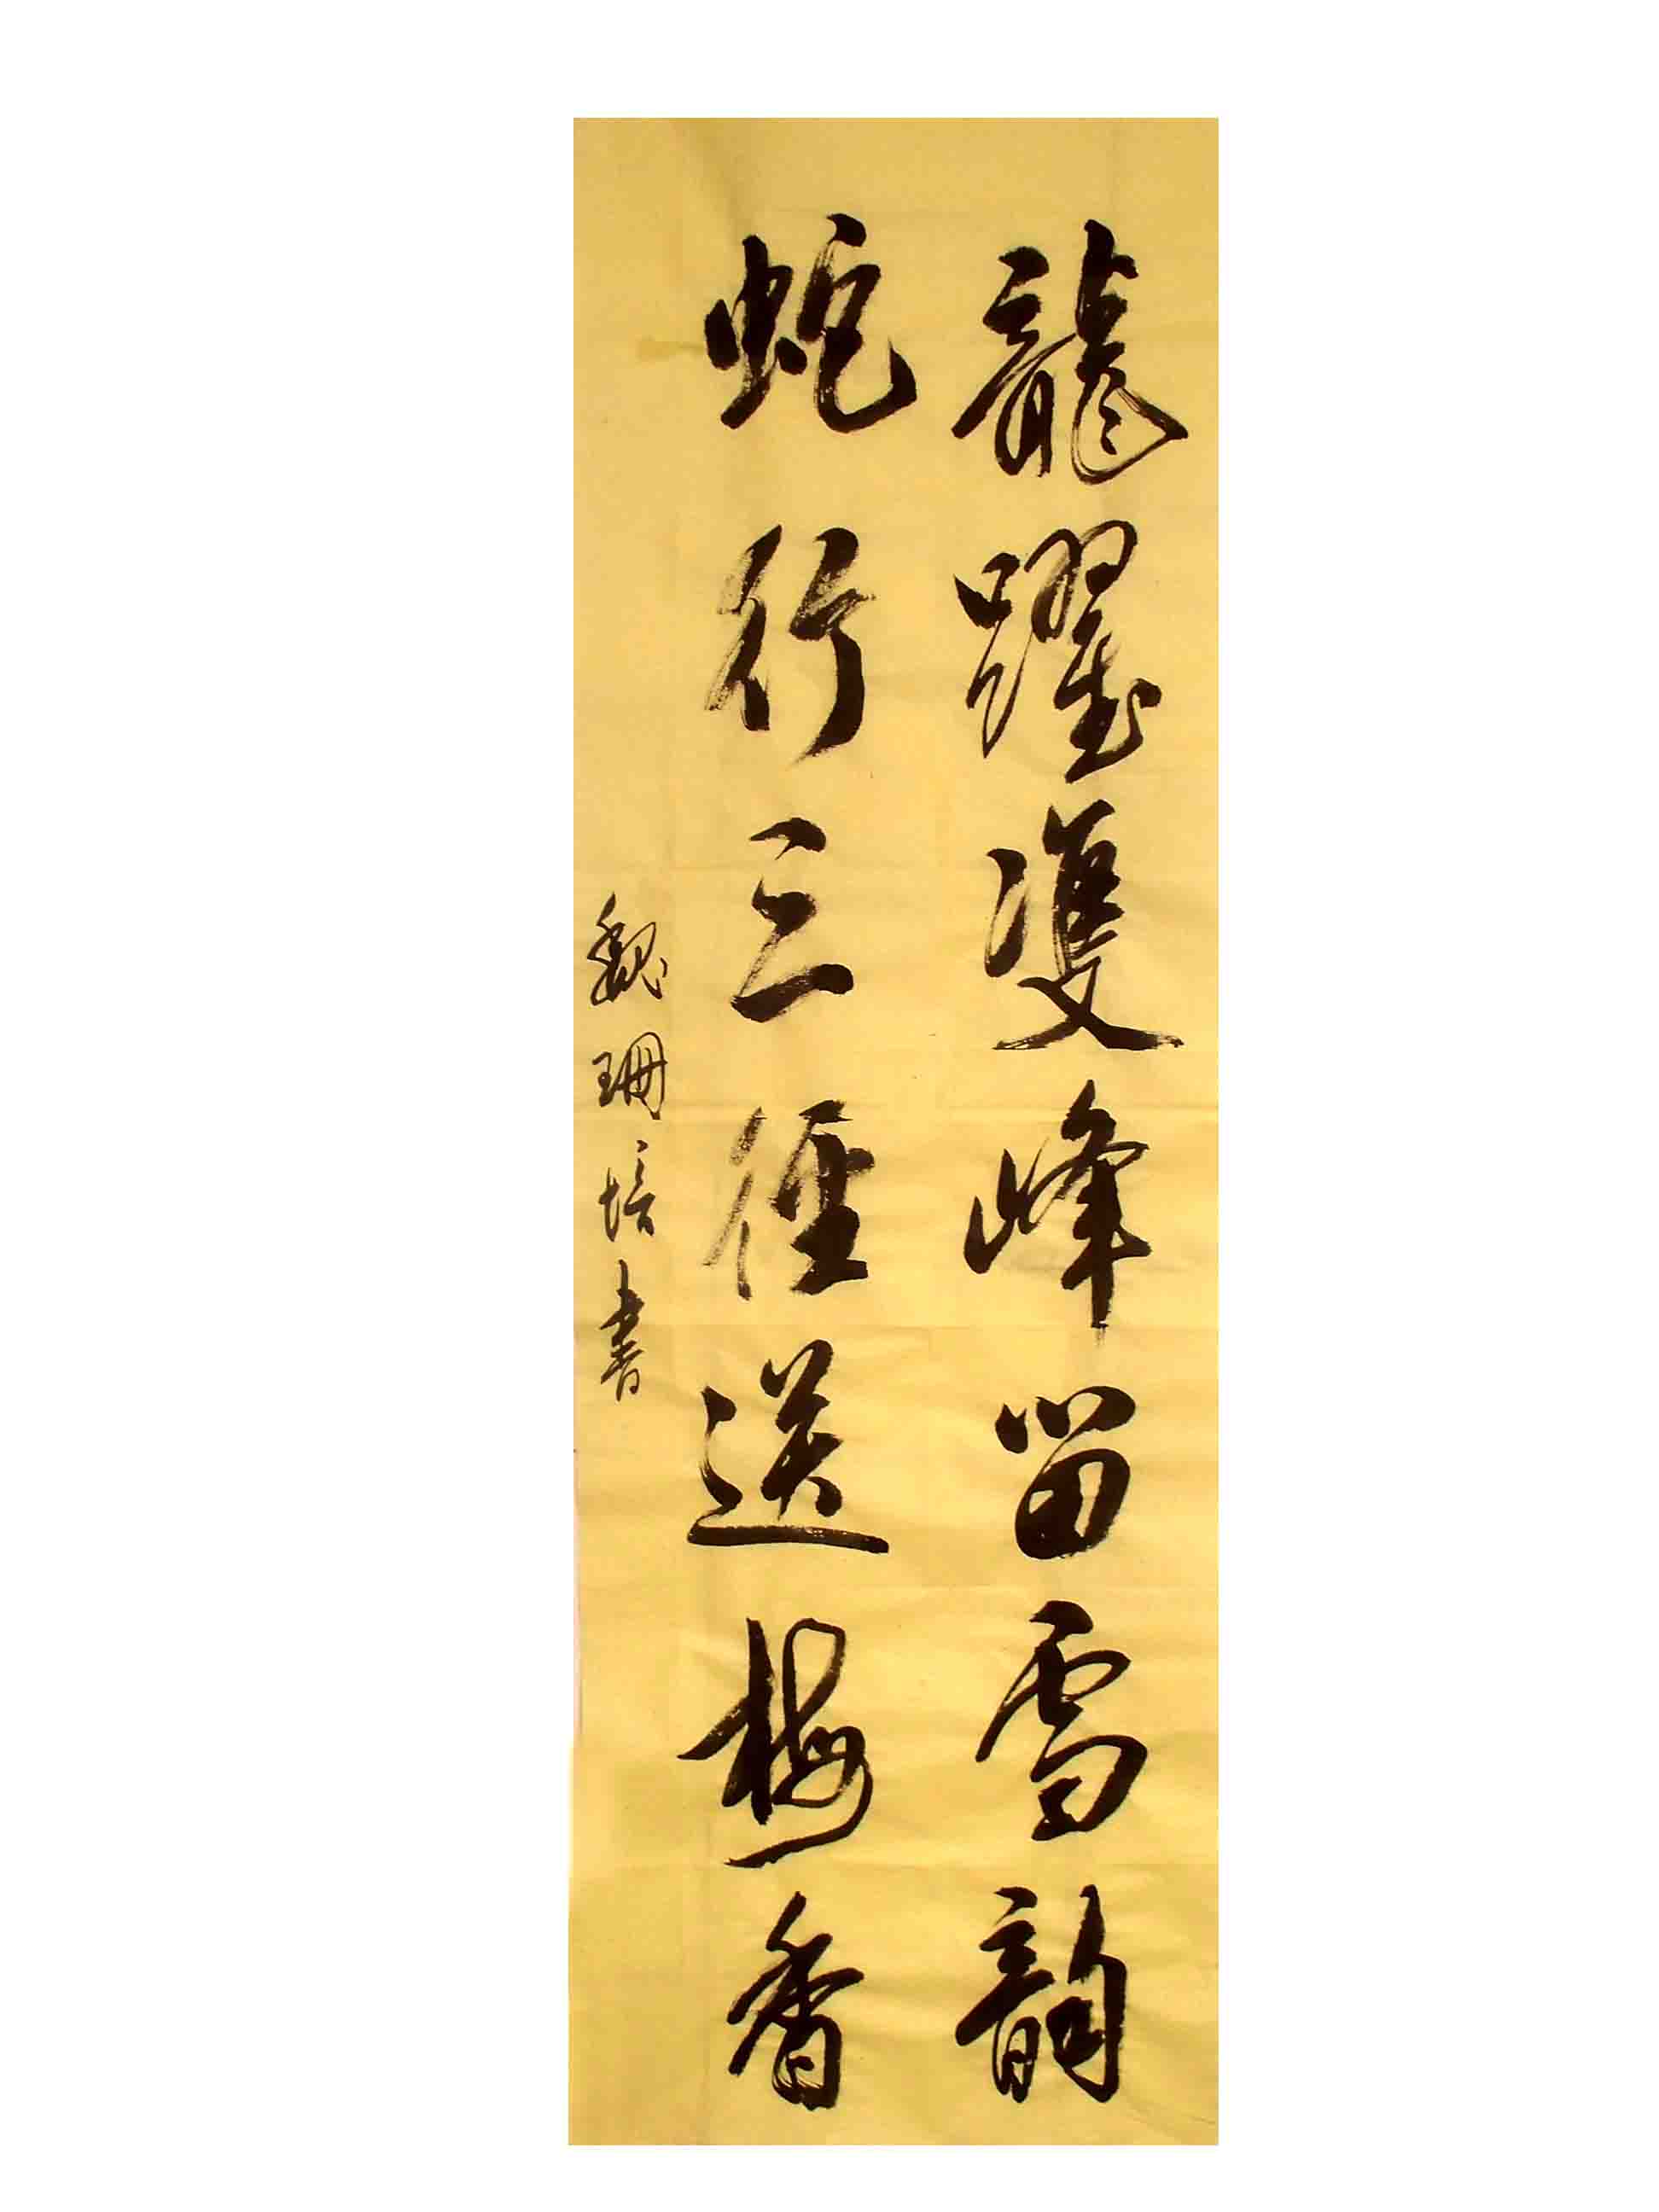 龍躍雙峰留雪韵
蛇行三徑送梅香
魏珊培書